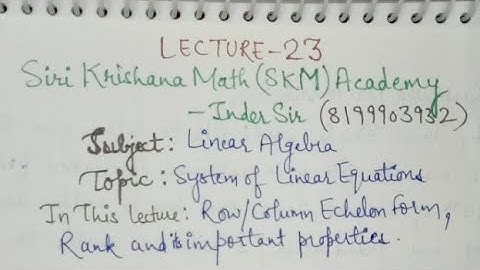 LECTURE-23
Siri Krishana Math (SKM) Academy
- Inder Sir (8199903932)
Subject: Linear Algebra
Topic: System of Linear Equations
In This lecture: Row/Column Echelon form,
Rank and its important properties.